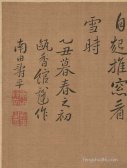 自起推窓看
雪時
乙丑暮春之初
甌香館作
南田壽平